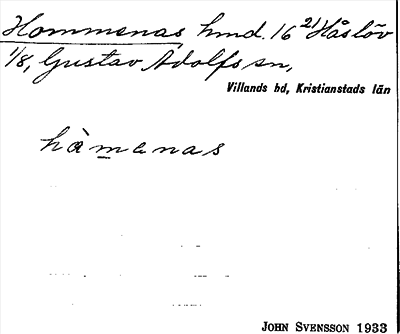 Hommenas, hmd. 16 21 Håslöv
1/8, Gustav Adolfs sn,
Villands hd, Kristianstads län
hàmenas
JOHN SVENSSON 1933